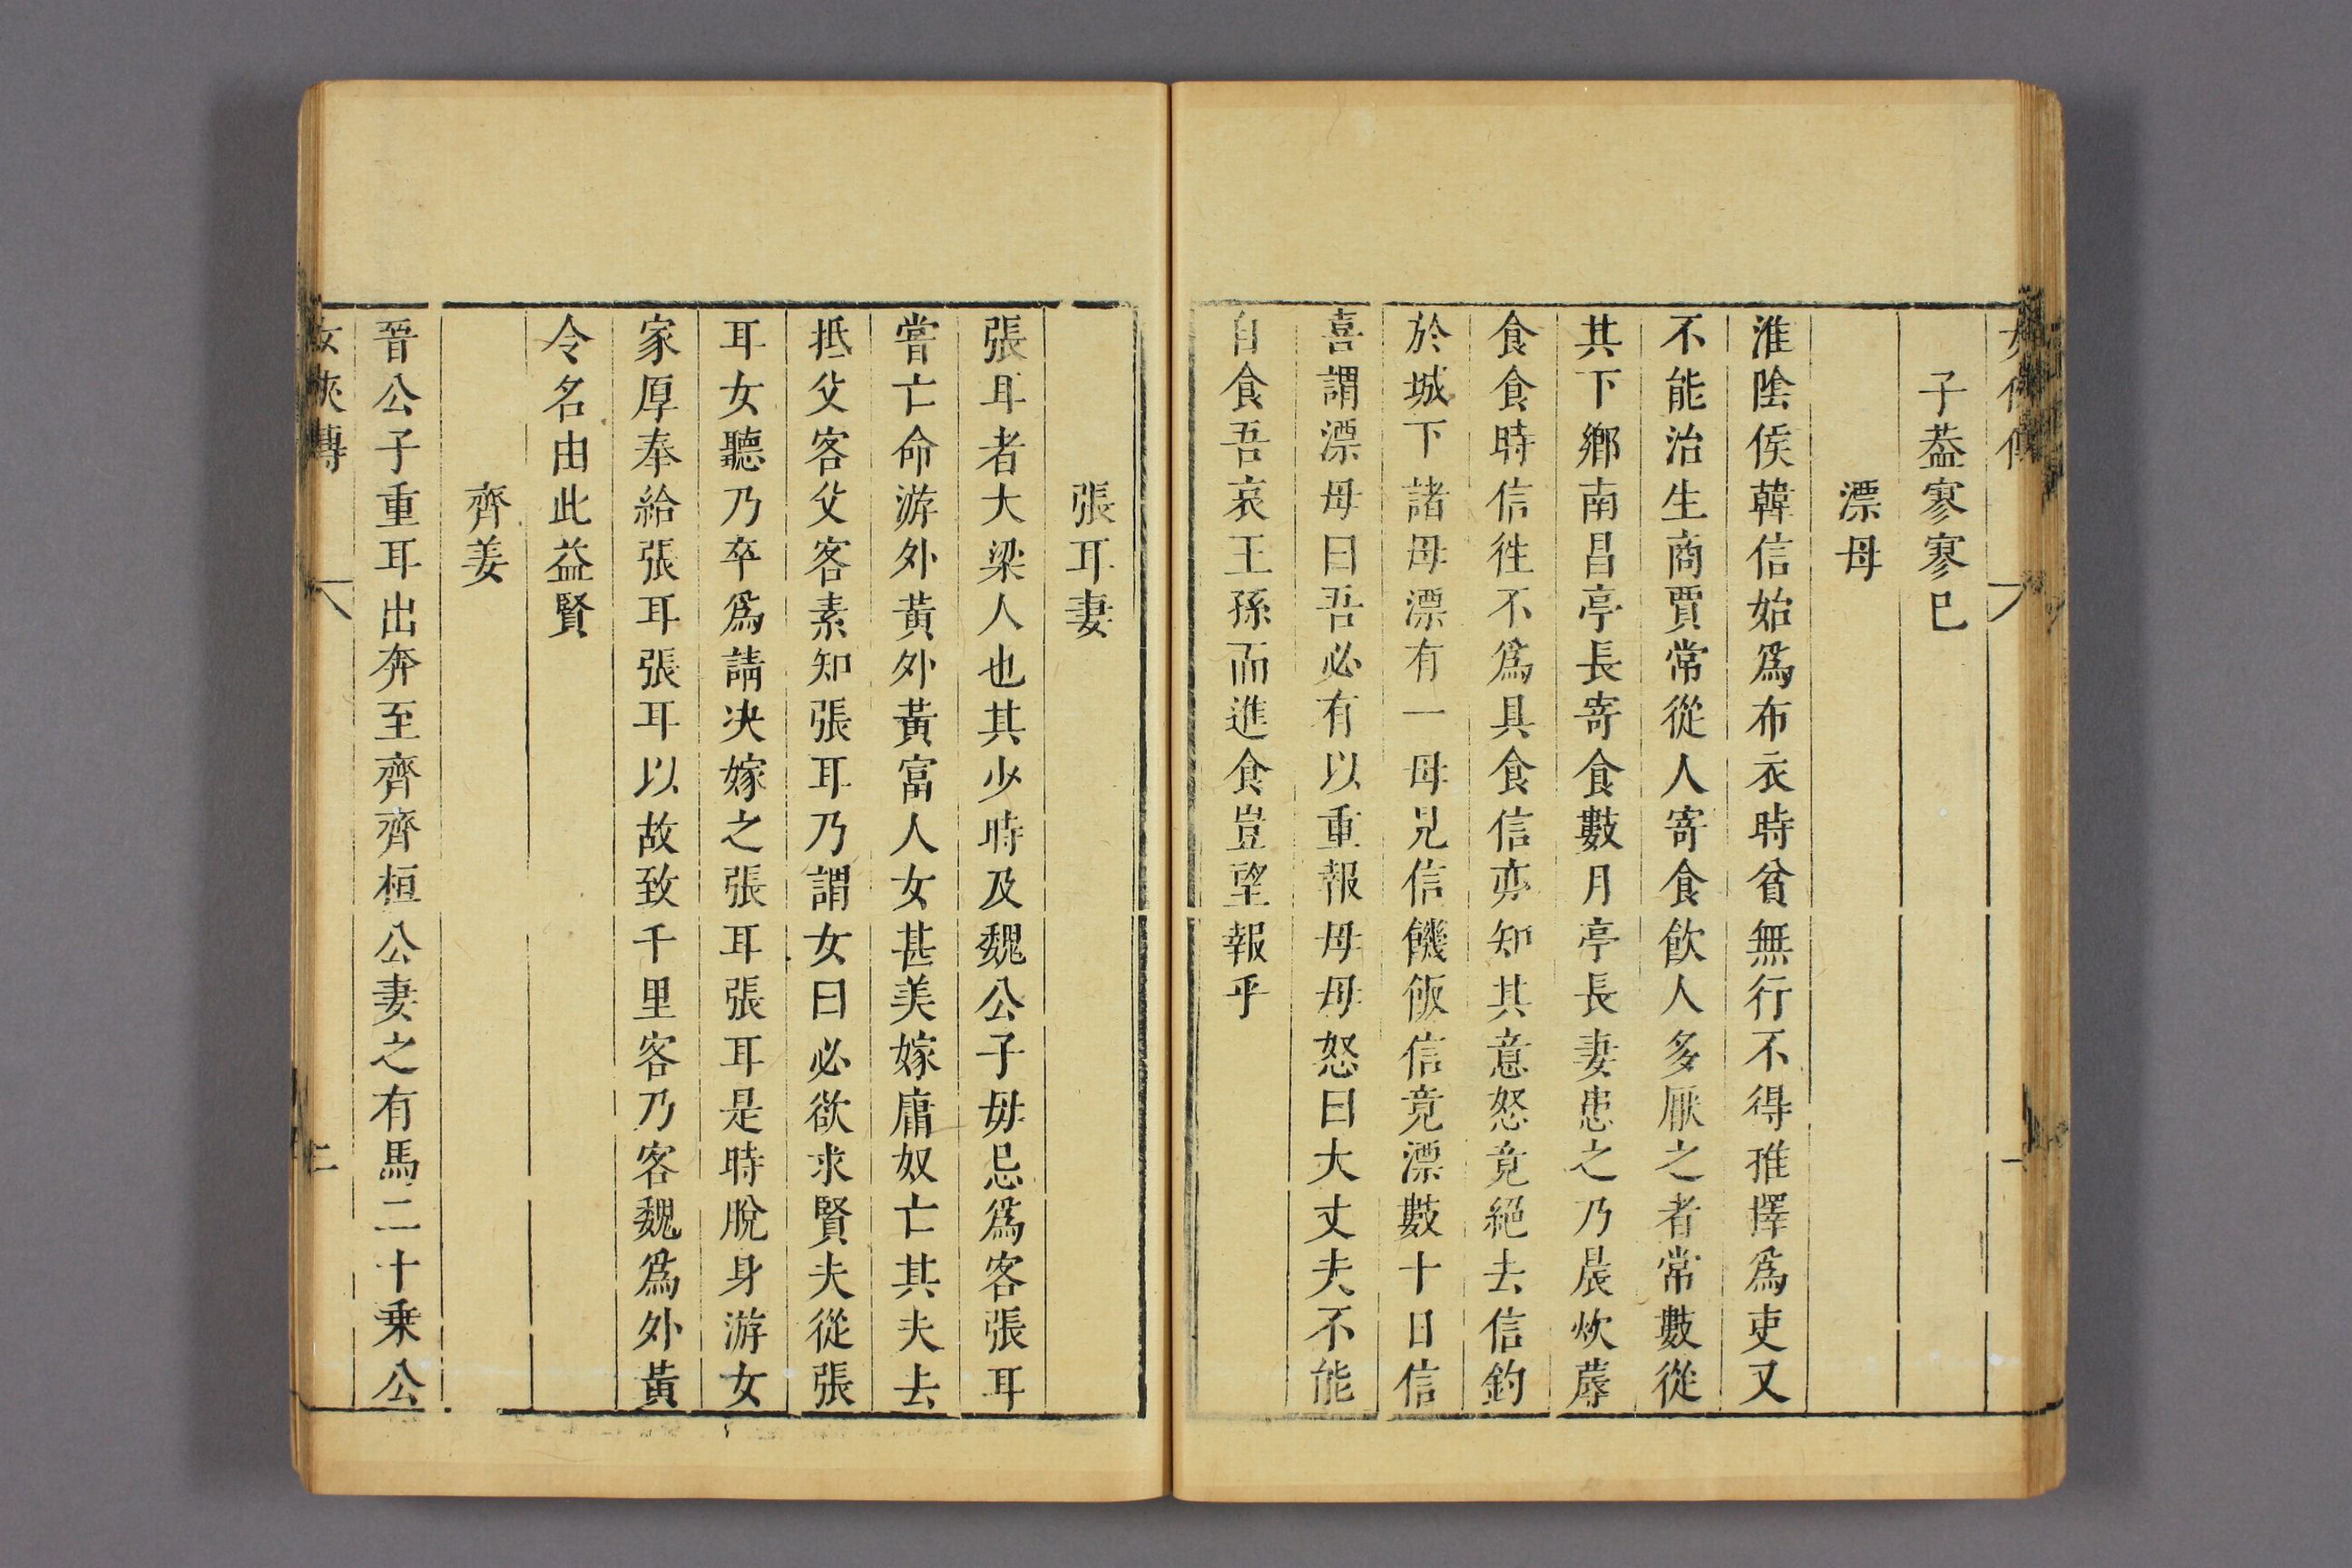 子葢寥寥巳
漂母
淮陰侯韓信始爲布衣時貧無行不得推擇爲吏又
不能治生商賈常從人寄食飲人多厭之者常數從
其下鄉南昌亭長寄食數月亭長妻患之乃晨炊蓐
食食時信徃不爲具食信亦知其意怒竟絕去信釣
於城下諸母漂有一母見信饑飯信竟漂數十日信
喜謂漂母曰吾必有以重報母母怒曰大丈夫不能
自食吾哀王孫而進食豈望報乎
張耳妻
張耳者大梁人也其少時及魏公子毋忌爲客張耳
嘗亡命游外黃外黃富人女甚美嫁庸奴亡其夫去
抵父客父客素知張耳乃謂女曰必欲求賢夫從張
耳女聽乃卒爲請决嫁之張耳張耳是時脫身游女
家厚奉給張耳張耳以故致千里客乃客魏爲外黃
令名由此益賢
齊姜
晉公子重耳出奔至齊齊桓公妻之有馬二十乗公
女俠傳